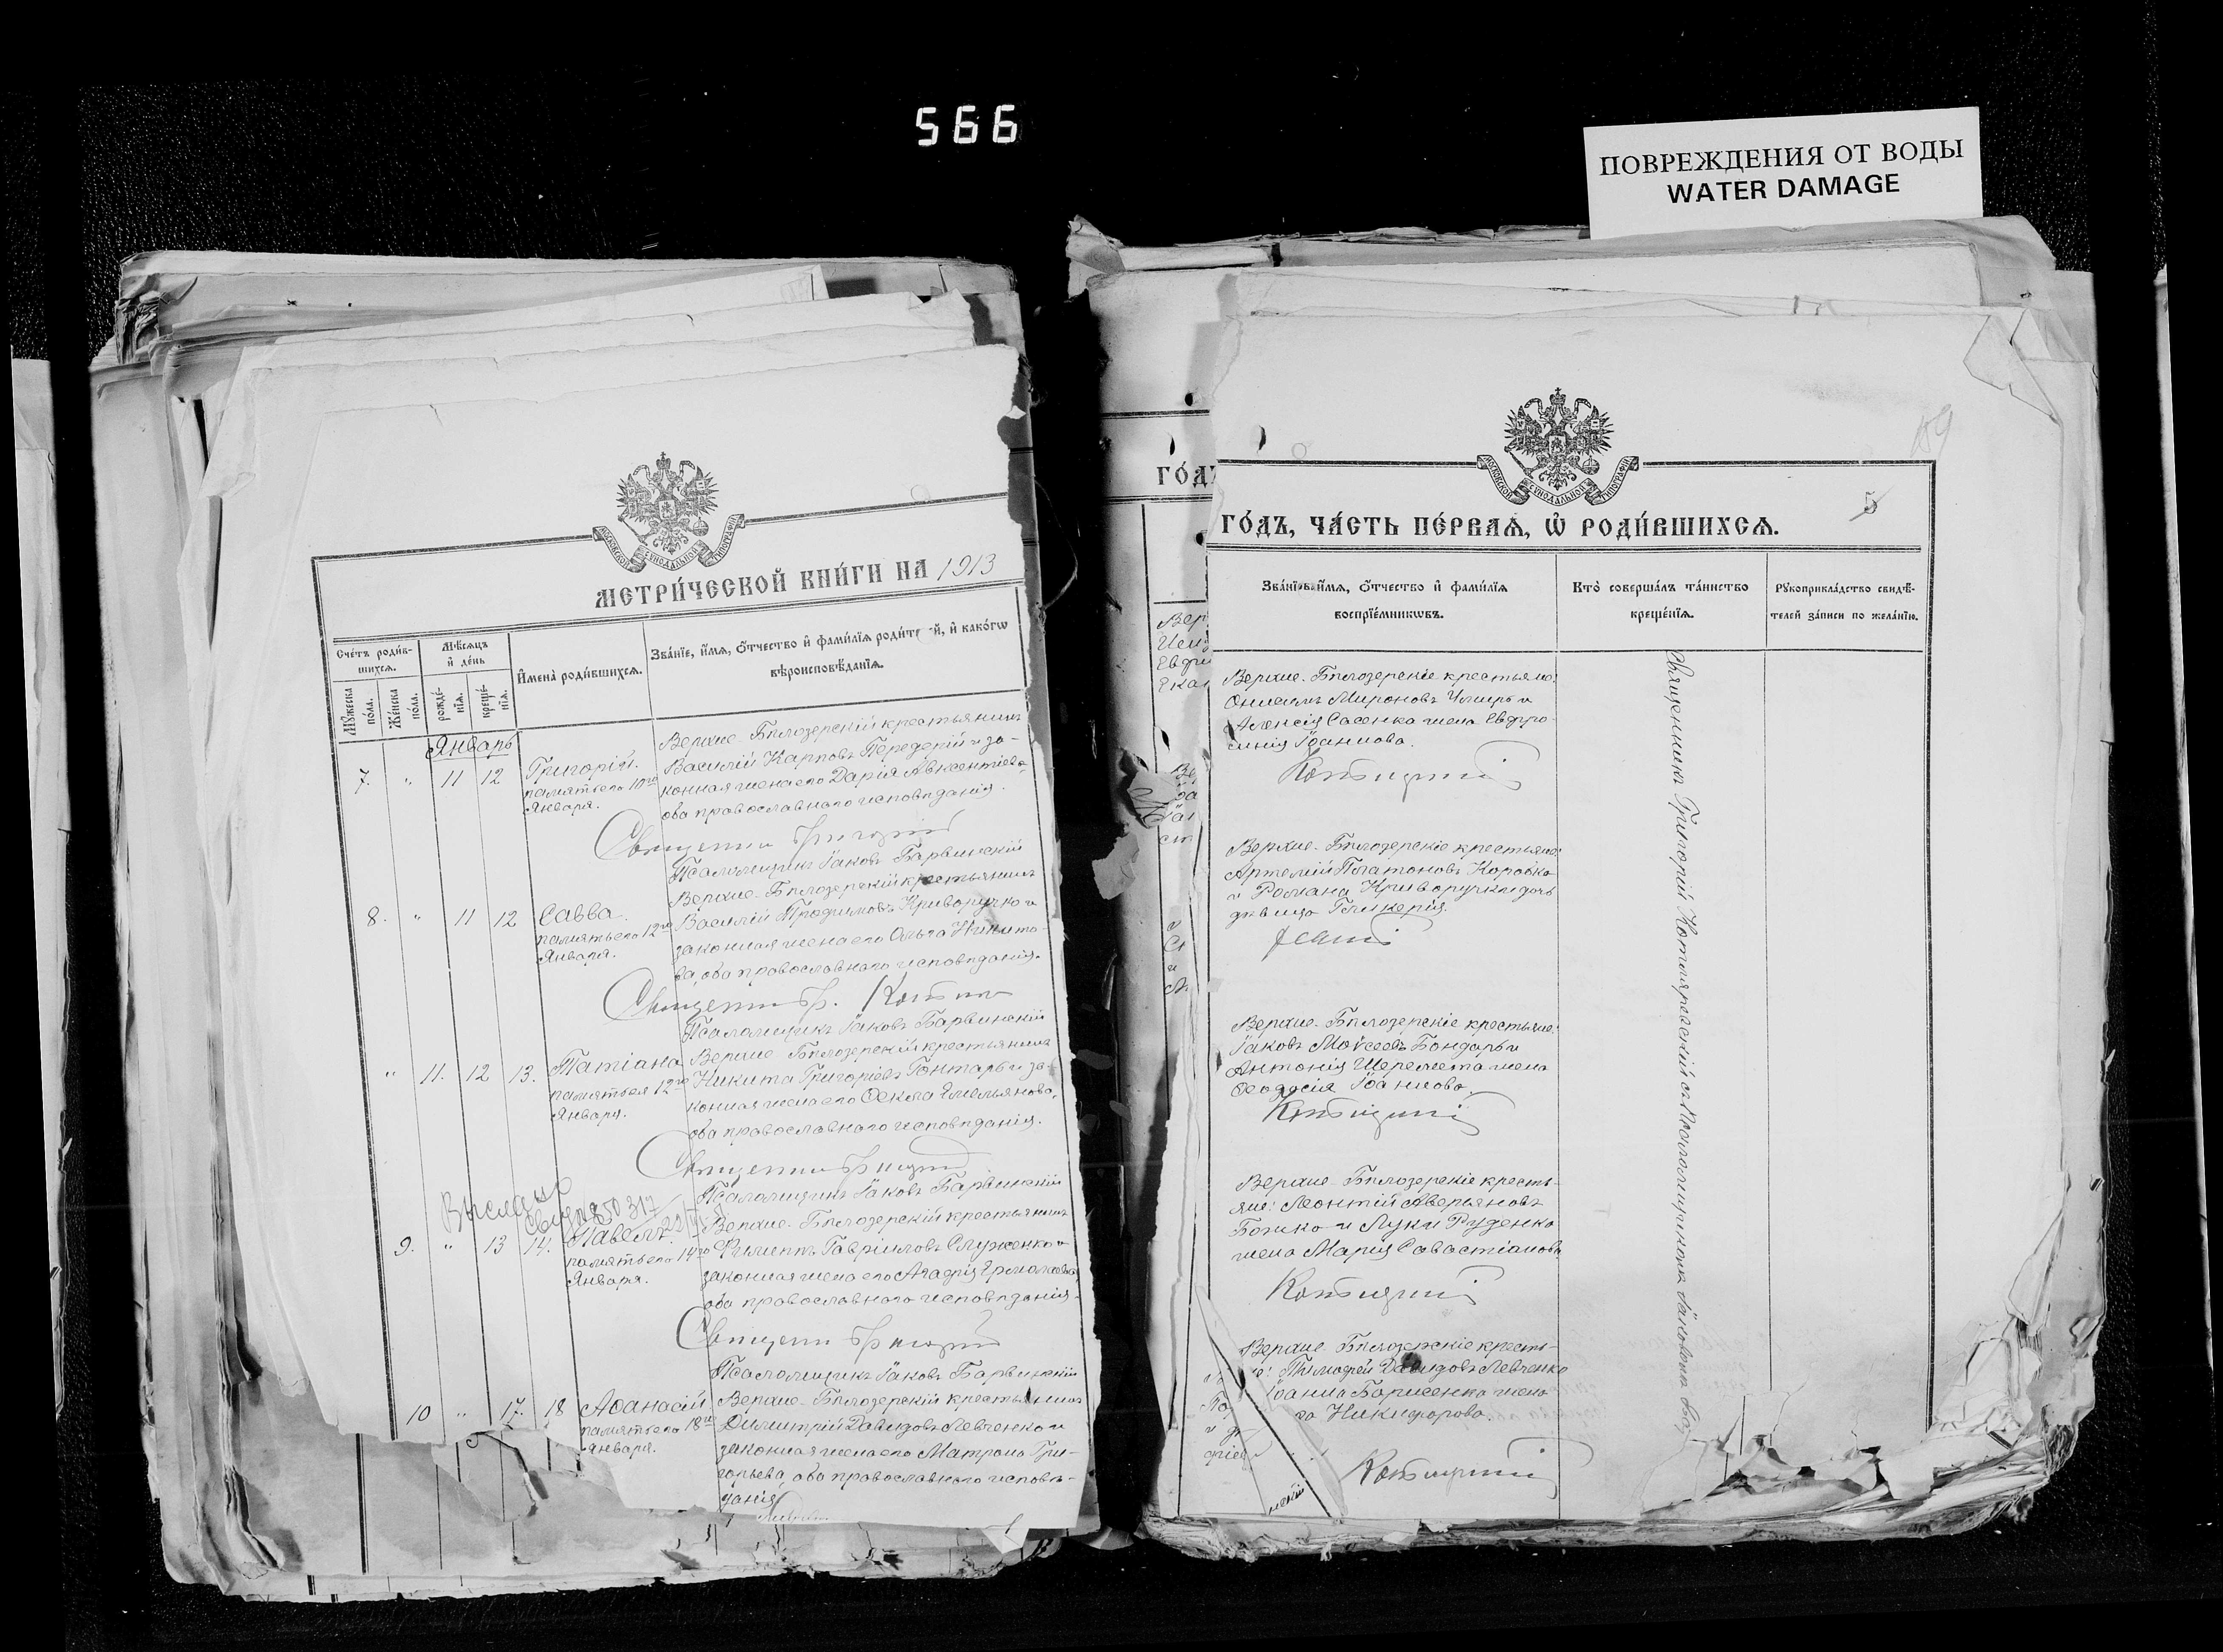 566
ПОВРЕЖДЕНИЯ ОТ ВОДЫ
WATER DAMAGE
МОСКОВСКОЙ СѴНОДАЛЬНОЙ ТИПОГРАФІИ
МЕТРИ́ЧЕСКОЙ КНИ́ГИ НА 1913
Сче́тъ роди́в-
шихсѧ.
Мѣ́сѧцъ
и҆ де́нь
И҆мена̀ роди́вшихсѧ.
Зва́нїе, и҆́мѧ, ѻ҆́тчество и҆ фами́лїѧ роди́т й, и҆ како́гѡ
вѣроисповѣ́данїѧ.
Мꙋ́жеска
по́ла.
Же́нска
по́ла.
рожде́-
нїѧ.
креще́-
нїѧ.
Январь
7. " 11 12
Григорій.
память его 10го
Января.
Верхне Бѣлозерскій крестьянинъ
Василій Карповъ Передерій и за-
конная жена его Дарія Авксентіева,
оба православнаго исповѣданія.
Священни Григорій
Псаломщикъ Іаковъ Барвинскій
8. " 11 12
Савва.
память его 12го
Января.
Верхне-Бѣлозерскій крестьянинъ
Василій Трофимовъ Криворучко и
законная жена его Ольга Никито-
ва, оба православнаго исповѣданія.
Священни Гр.
Псаломщикъ Іаковъ Барвинскій
" 11. 12 13.
Татіана
память ея 12го
Января.
Верхне Бѣлозерскій крестьянинъ
Никита Григоріевъ Гонтарь и за-
конная жена его Ѳекла Емельянова,
оба православнаго исповѣданія.
Священни Григорій
Псаломщикъ Іаковъ Барвинскій
9. " 13 14.
Павелъ.
память его 14го
Января.
Верхне-Бѣлозерскій крестьянинъ
Филиппъ Гавріиловъ Служенко и
законная жена его Агафія Ермолаева,
оба православнаго исповѣданія.
Священни Григорій
Псаломщикъ Іаковъ Барвинскій
10 " 17. 18
Аѳанасій
память его 18го
Января.
Верхне-Бѣлозерскій крестьянинъ
Димитрій Давидовъ Левченко и
законная жена его Матрона Гри-
горьева, оба православнаго исповѣ-
данія
5
ГО́ДЪ, ЧА́СТЬ ПЕ́РВАѦ, Ѡ҆ РОДИ́ВШИХСѦ.
Зва́нїе, и҆́мѧ, ѻ҆́тчество и҆ фами́лїѧ
воспрїе́мникѡвъ.
Кто̀ соверша́лъ та́инство
креще́нїѧ.
Рꙋкоприкла́дство свидѣ́-
телей за́писи по жела́нїю.
Верхне-Бѣлозерскіе крестьяне:
Онисимъ Мироновъ и
Алексія Сасенка жена Евфро-
синія Іоаннова.
Верхне-Бѣлозерскіе крестьяне:
Артемій Платоновъ Коробка
и Романа Криворучки дочь
дѣвица Гликерія.
Верхне-Бѣлозерскіе крестьяне:
Іаковъ Моѵсеевъ Бондарь и
Антонія Шеремета жена
Ѳеодосія Іоаннова.
Верхне-Бѣлозерскіе кресть-
яне: Леонтій Аверьяновъ
Божко и Луки Руденко
жена Марія Савастіанова
Верхне-Бѣлозерскіе кресть-
Тимоѳей Давидовъ Левченко
Іоанна Борисенка жена
Никифорова.
Священникъ Григорій Котляревскій съ псаломщикомъ Іаковомъ Бар